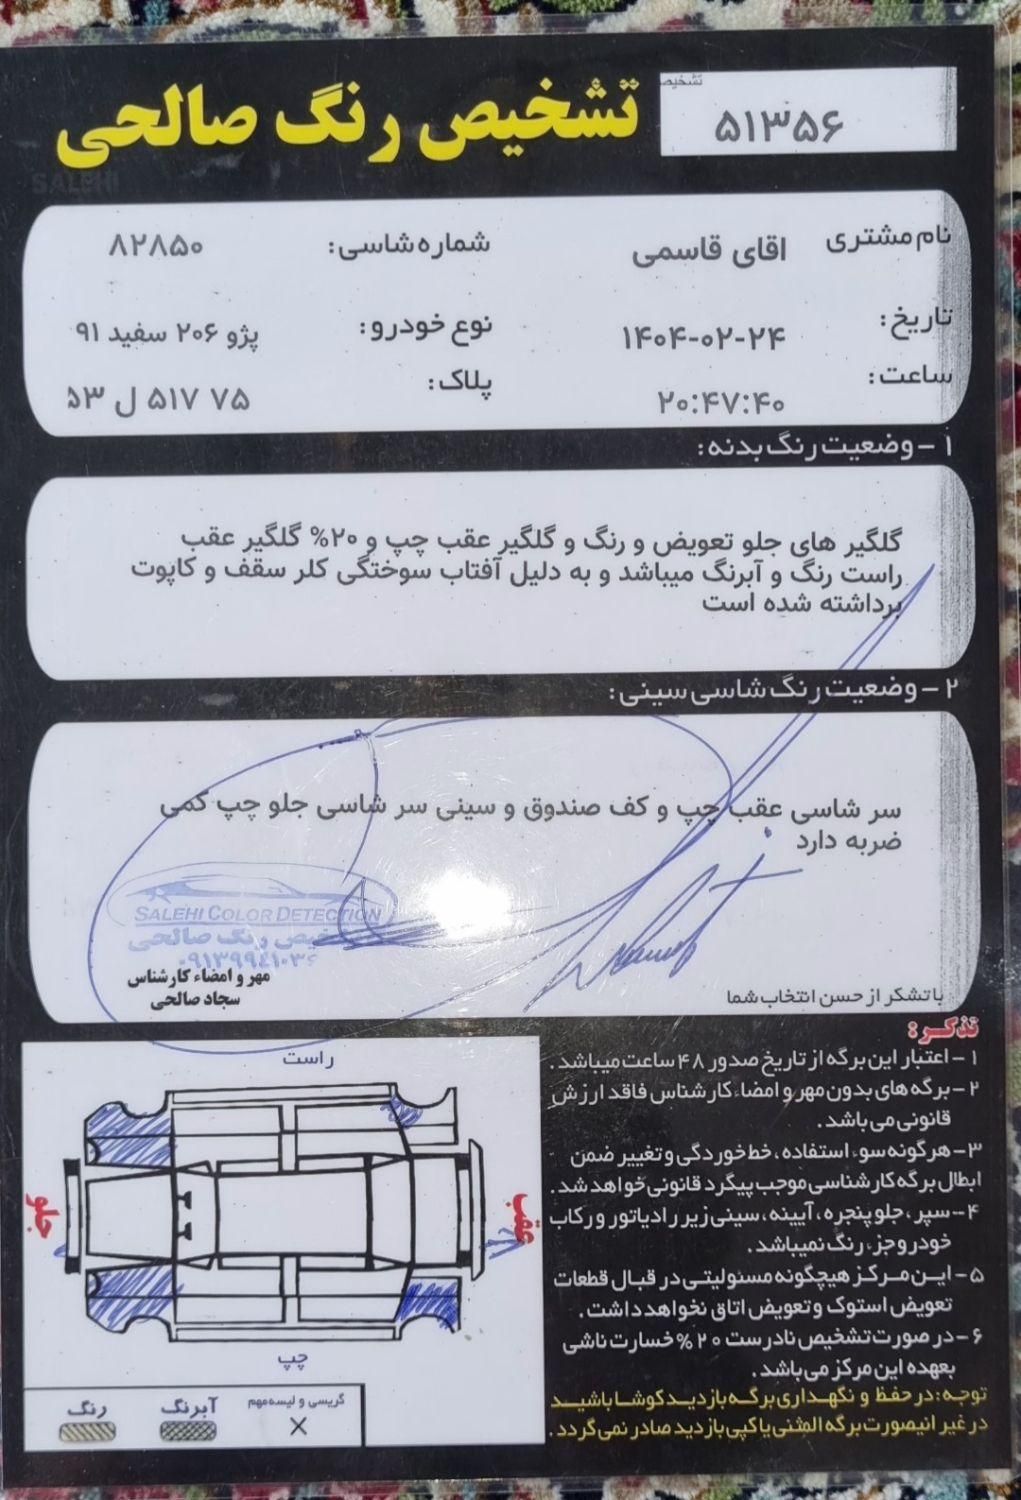 تشخیص رنگ صالحی
تشخیص
۵۱۳۵۶
SALEHI
نام مشتری اقای قاسمی
شماره شاسی: ۸۲۸۵۰
تاریخ: ۱۴۰۴-۰۲-۲۴
نوع خودرو: پژو ۲۰۶ سفید ۹۱
ساعت: ۲۰:۴۷:۴۰
پلاک: ۵۳ ل ۵۱۷ ۷۵
۱- وضعیت رنگ بدنه:
گلگیر های جلو تعویض و رنگ و گلگیر عقب چپ و ۲۰% گلگیر عقب
راست رنگ و آبرنگ میباشد و به دلیل آفتاب سوختگی کلر سقف و کاپوت
برداشته شده است
۲- وضعیت رنگ شاسی سینی:
سر شاسی عقب چپ و کف صندوق و سینی سر شاسی جلو چپ کمی
ضربه دارد
SALEHI COLOR DETECTION
تشخیص رنگ صالحی
مهر و امضاء کارشناس
سجاد صالحی
با تشکر از حسن انتخاب شما
تذکر:
۱- اعتبار این برگه از تاریخ صدور ۴۸ ساعت میباشد.
۲- برگه های بدون مهر و امضاء کارشناس فاقد ارزش
قانونی می باشد.
۳- هرگونه سوء استفاده، خط خوردگی و تغییر ضمن
ابطال برگه کارشناسی موجب پیگرد قانونی خواهد شد.
۴- سپر، جلو پنجره، آیینه، سینی زیر رادیاتور و رکاب
خودرو جزء رنگ نمیباشد.
۵- این مرکز هیچگونه مسئولیتی در قبال قطعات
تعویض استوک و تعویض اتاق نخواهد داشت.
۶- در صورت تشخیص نادرست ۲۰% خسارت ناشی
بعهده این مرکز می باشد.
توجه: در حفظ و نگهداری برگه بازدید کوشا باشید
در غیر اینصورت برگه المثنی یا کپی بازدید صادر نمی گردد.
راست
جلو
عقب
چپ
رنگ
آبرنگ
گریسی و لیسه مهم
×